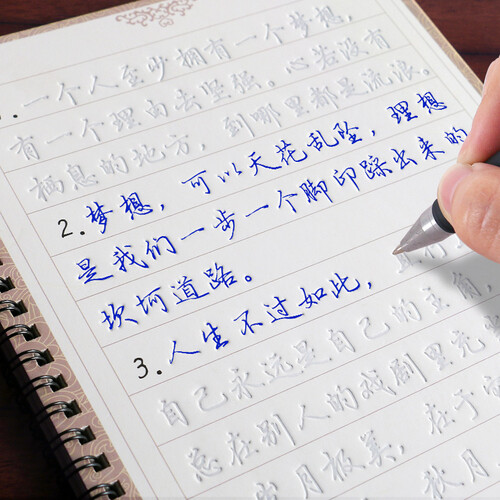 1. 一个人至少拥有一个梦想,
有一个理由去坚强。心若没有
栖息的地方, 到哪里都是流浪。
2. 梦想, 可以天花乱坠, 理想
是我们一步一个脚印踩出来的
坎坷道路。
3. 人生不过如此,
自己永远是自己的主角,
总在别人的戏剧里充
岁月极美, 在于
秋月